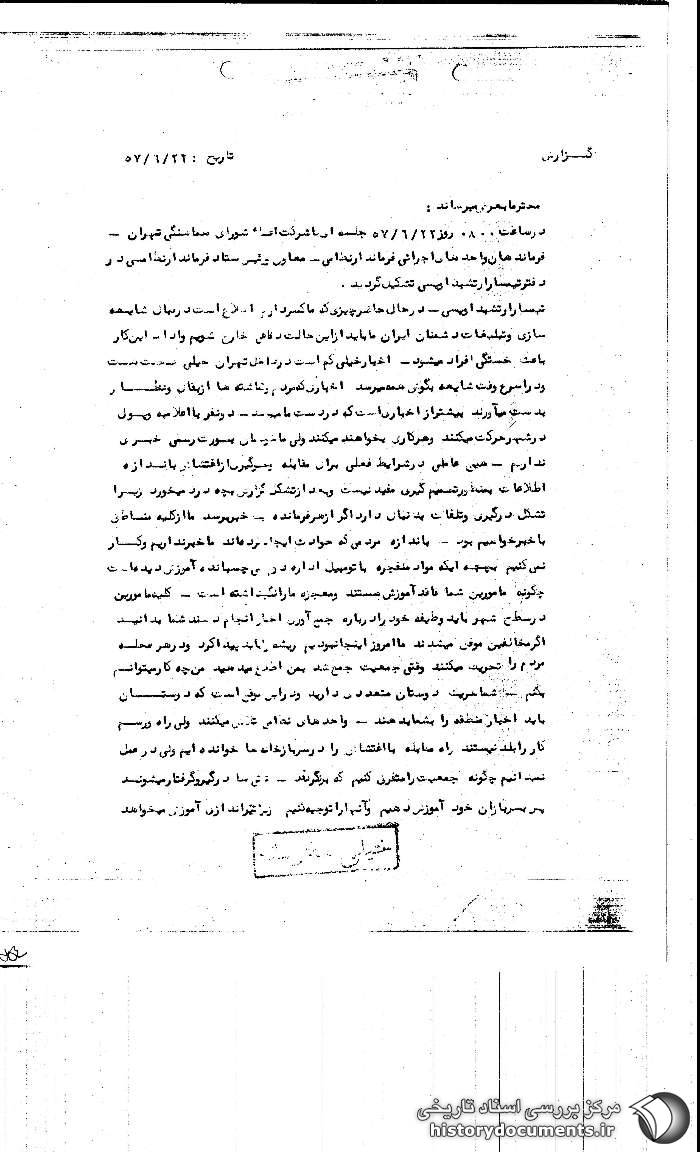 گزارش
تاریخ : ۵۷/۶/۲۲
محترما بعرض میرساند :
در ساعت ۰۸۰۰ روز ۵۷/۶/۲۲ جلسه ای با شرکت اعضاء شورای هماهنگی تهران –
فرماندهان واحدهای اجرائی فرمانداری نظامی – معاون و رئیس ستاد فرمانداری نظامی در
دفتر تیمسار ارتشبد اویسی تشکیل گردید .
تیمسار ارتشبد اویسی – در حال حاضر چیزی که ما کسر داریم اطلاع است در مقابل شایعه
سازی و تبلیغات دشمنان ایران ما باید از این حالت دفاعی خارج شویم و این کار
باعث خستگی افراد میشود – اخبار خیلی کم است در داخل تهران خیلی سست است
و در اسرع وقت شایعه بگوش همه میرسد اخباری که مردم
بدست میآورند بیشتر از اخباری است که در دست ما میرسد – دو نفر با اعلامیه و پول
در شهر حرکت میکنند و هر کاری بخواهند میکنند ولی ما بصورت رسمی خبری
نداریم – هیچ عاملی در شرایط فعلی برای مقابله و جلوگیری از اغتشاش باندازه
اطلاعات بمنظور تصمیم گیری مفید نیست گزارش بچه درد میخورد زیرا
درگیری و تلفات بدنبال دارد اگر از هر فرمانده – خبر برسد ما از کلیه مناطق
با خبر خواهیم بود – باندازه مردمی که حوادث ایجاد کرده اند ما خبر نداریم و کار
نمی کنیم بچه ایکه مواد منفجره باتومبیل اداره می چسبانده آموزش دیده است
چگونه مامورین شما فاقد آموزش هستند و معجزه ما را نگهداشته است – کلیه مامورین
در سطح شهر باید وظیفه خود را درباره جمع آوری اخبار انجام دهند شما بدانید
اگر مخالفین موفق میشدند ما امروز اینجا نبودیم ریشه را باید پیدا کرد و در هر محله
مردم را تحریک میکنند وقتی جمعیت جمع شد بمن اطلاع میدهید من چه کار میتوانم
بکنم شما دوستان متعددی دارید و در این موقع است که دوستان
باید اخبار منطقه را بشما بدهند – واحدهای نظامی تلاش میکنند ولی راه و رسم
کار را بلد نیستند راه مقابله با اغتشاش را در سربازخانه ها خوانده ایم ولی در عمل
نمیدانیم چگونه جمعیت را متفرق کنیم که برنگردند – درگیر و گرفتار میشوند
پس بسربازان خود آموزش دهیم و آنها را توجیه کنیم زیرا تیراندازی آموزش میخواهد
مرکز بررسی اسناد تاریخی
historydocuments.ir